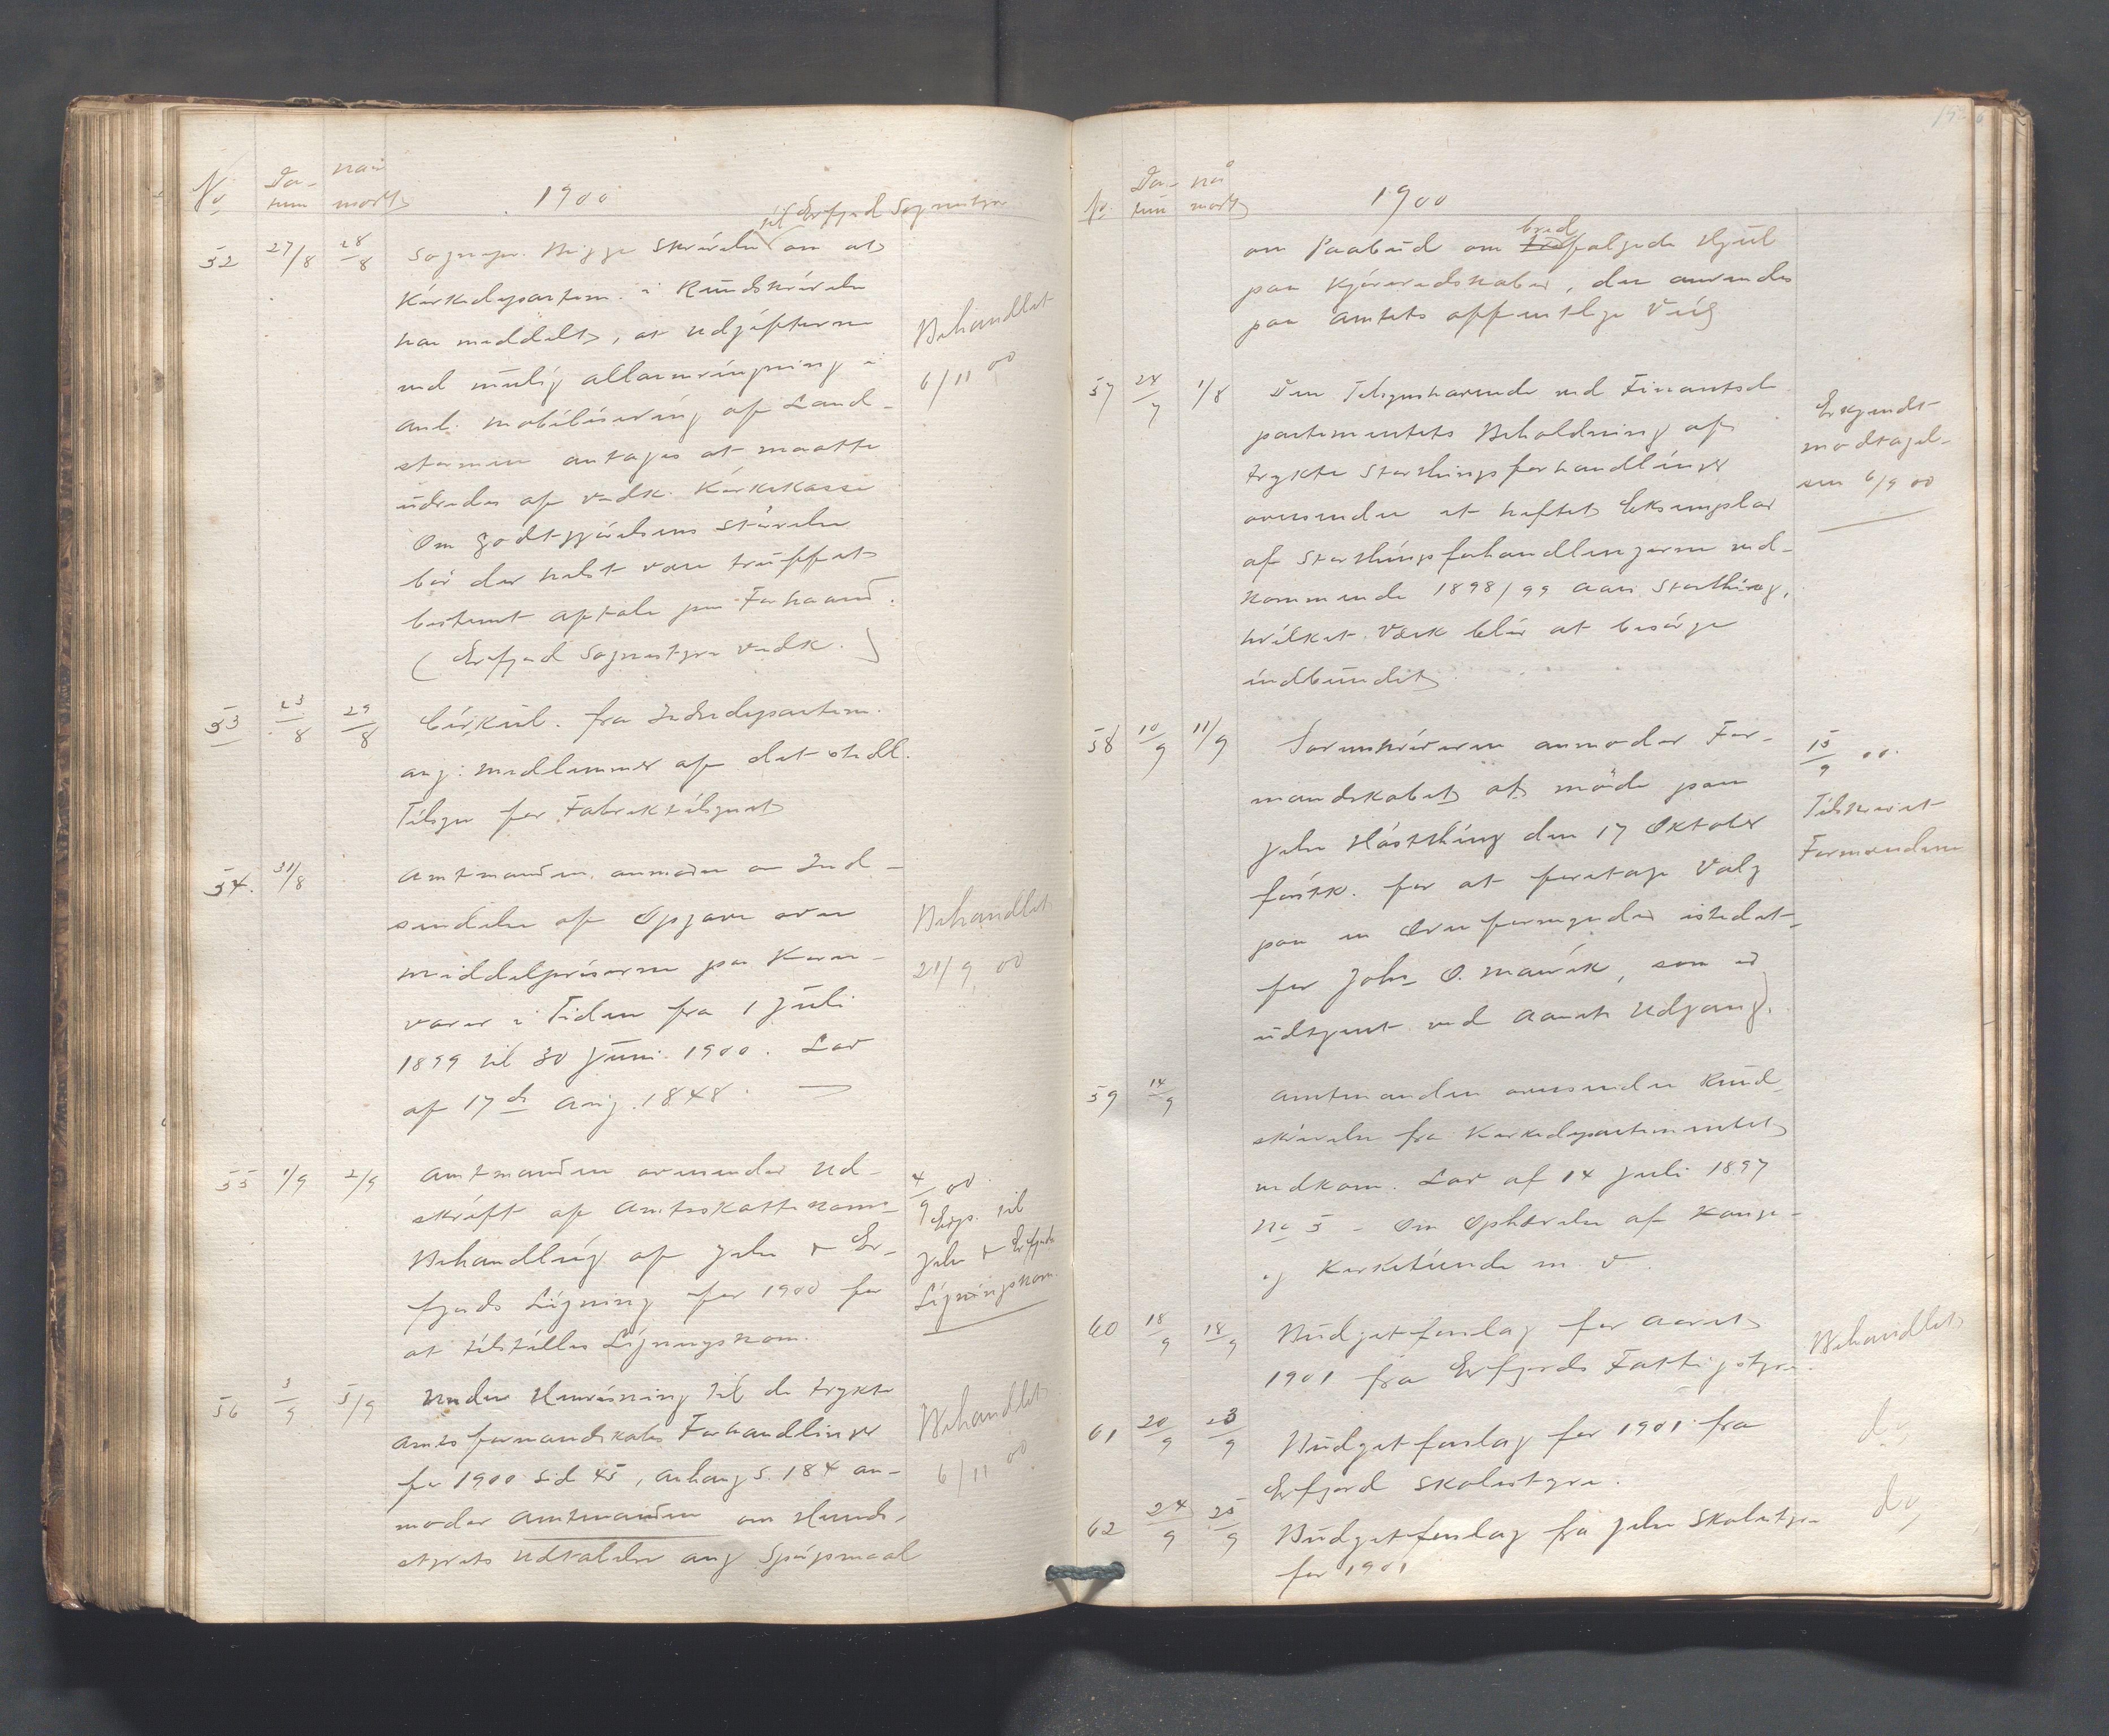 No Da- naar
tum modt
1900
52 27/8 28/8 Sognepr. Bigge Skrivelse til Erfjord Sognestyre om at
Kirkedepartem. i Rundskrivelse
har meddelt, at Udgifterne
ved mulig allarmringning i
anl. mobilisering af Land-
stormen antages at maatte
udredes af vedk. Kirkekasse
Om Godtgjörelsens Störrelse
bör der helst være truffet
bestemt aftale paa Forhaand.
(Erfjord Sognestyre vedk.)
Behandlet
6/11 00
53 23/8 29/8 Cirkul. fra Indredepartem.
ang: medlemmer af det stedl.
Tilsyn for Fabriktilsynet
54. 31/8 Amtmanden anmoder om Ind-
sendelse af Opgave over
Middelpriserne paa Korn-
varer i Tiden fra 1 Juli
1899 til 30 Juni 1900. Lov
af 17de Aug. 1848.
Behandlet
21/9 00
55 1/9 2/9 Amtmanden oversender Ud-
skrift af Amtsskattekoms
Behandling af Jelse & Er-
fjords Ligning for 1900 for
at tilstilles Ligningskom.
4/9 00.
Exp. til
Jelse & Erfjords
Ligningskom.
56 3/9 5/9 Under Henvisning til de trykte
Amtsformandskabs Forhandlinger
for 1900 Sid 45, Anhang S. 184 an-
moder Amtmanden om Herreds-
styrets Udtalelse ang Spörgsmaal
Behandlet
6/11 00
No. Da- naa
tum modt
1900
om Paabud om bredfælgede Hjul
paa Kjöreredskaber, der anvendes
paa Amtets offentlige Veie
57 28/7 1/8 Den Tilsynshavende ved Finantsde
partementets Beholdning af
trykte Storthingsforhandlinger
oversender et heftet Eksemplar
af Storthingsforhandlingerne ved-
kommende 1898/99 aars Storthing,
hvilket Værk blir at besörge
indbundet
Erkjendt
modtagel-
sen 6/9 00
58 10/9 11/9 Sorenskriveren anmoder For-
mandskabet at möde paa
Jelse Höstthing den 17 Oktober
förstk. for at foretage Valg
paa en Overformynder istedet-
for John O. Marvik, som er
udtjent ved Aarets Udgang.
15/9 00.
Tilskrevet
Formændene
59 14/9 Amtmanden oversender Rund
skrivelse fra Kirkedepartementet
vedkom. Lov af 14 Juli 1897
No 5 - Om Ophævelse af Konge-
og Kirketiende m. v.
60 18/9 18/9 Budgetforslag for Aaret
1901 fra Erfjords Fattigstyre.
Behandlet
61 20/9 23/9 Budgetforslag for 1901 fra
Erfjord Skolestyre.
do
62 24/9 25/9 Budgetforslag fra Jelse Skolestyre
for 1901
do